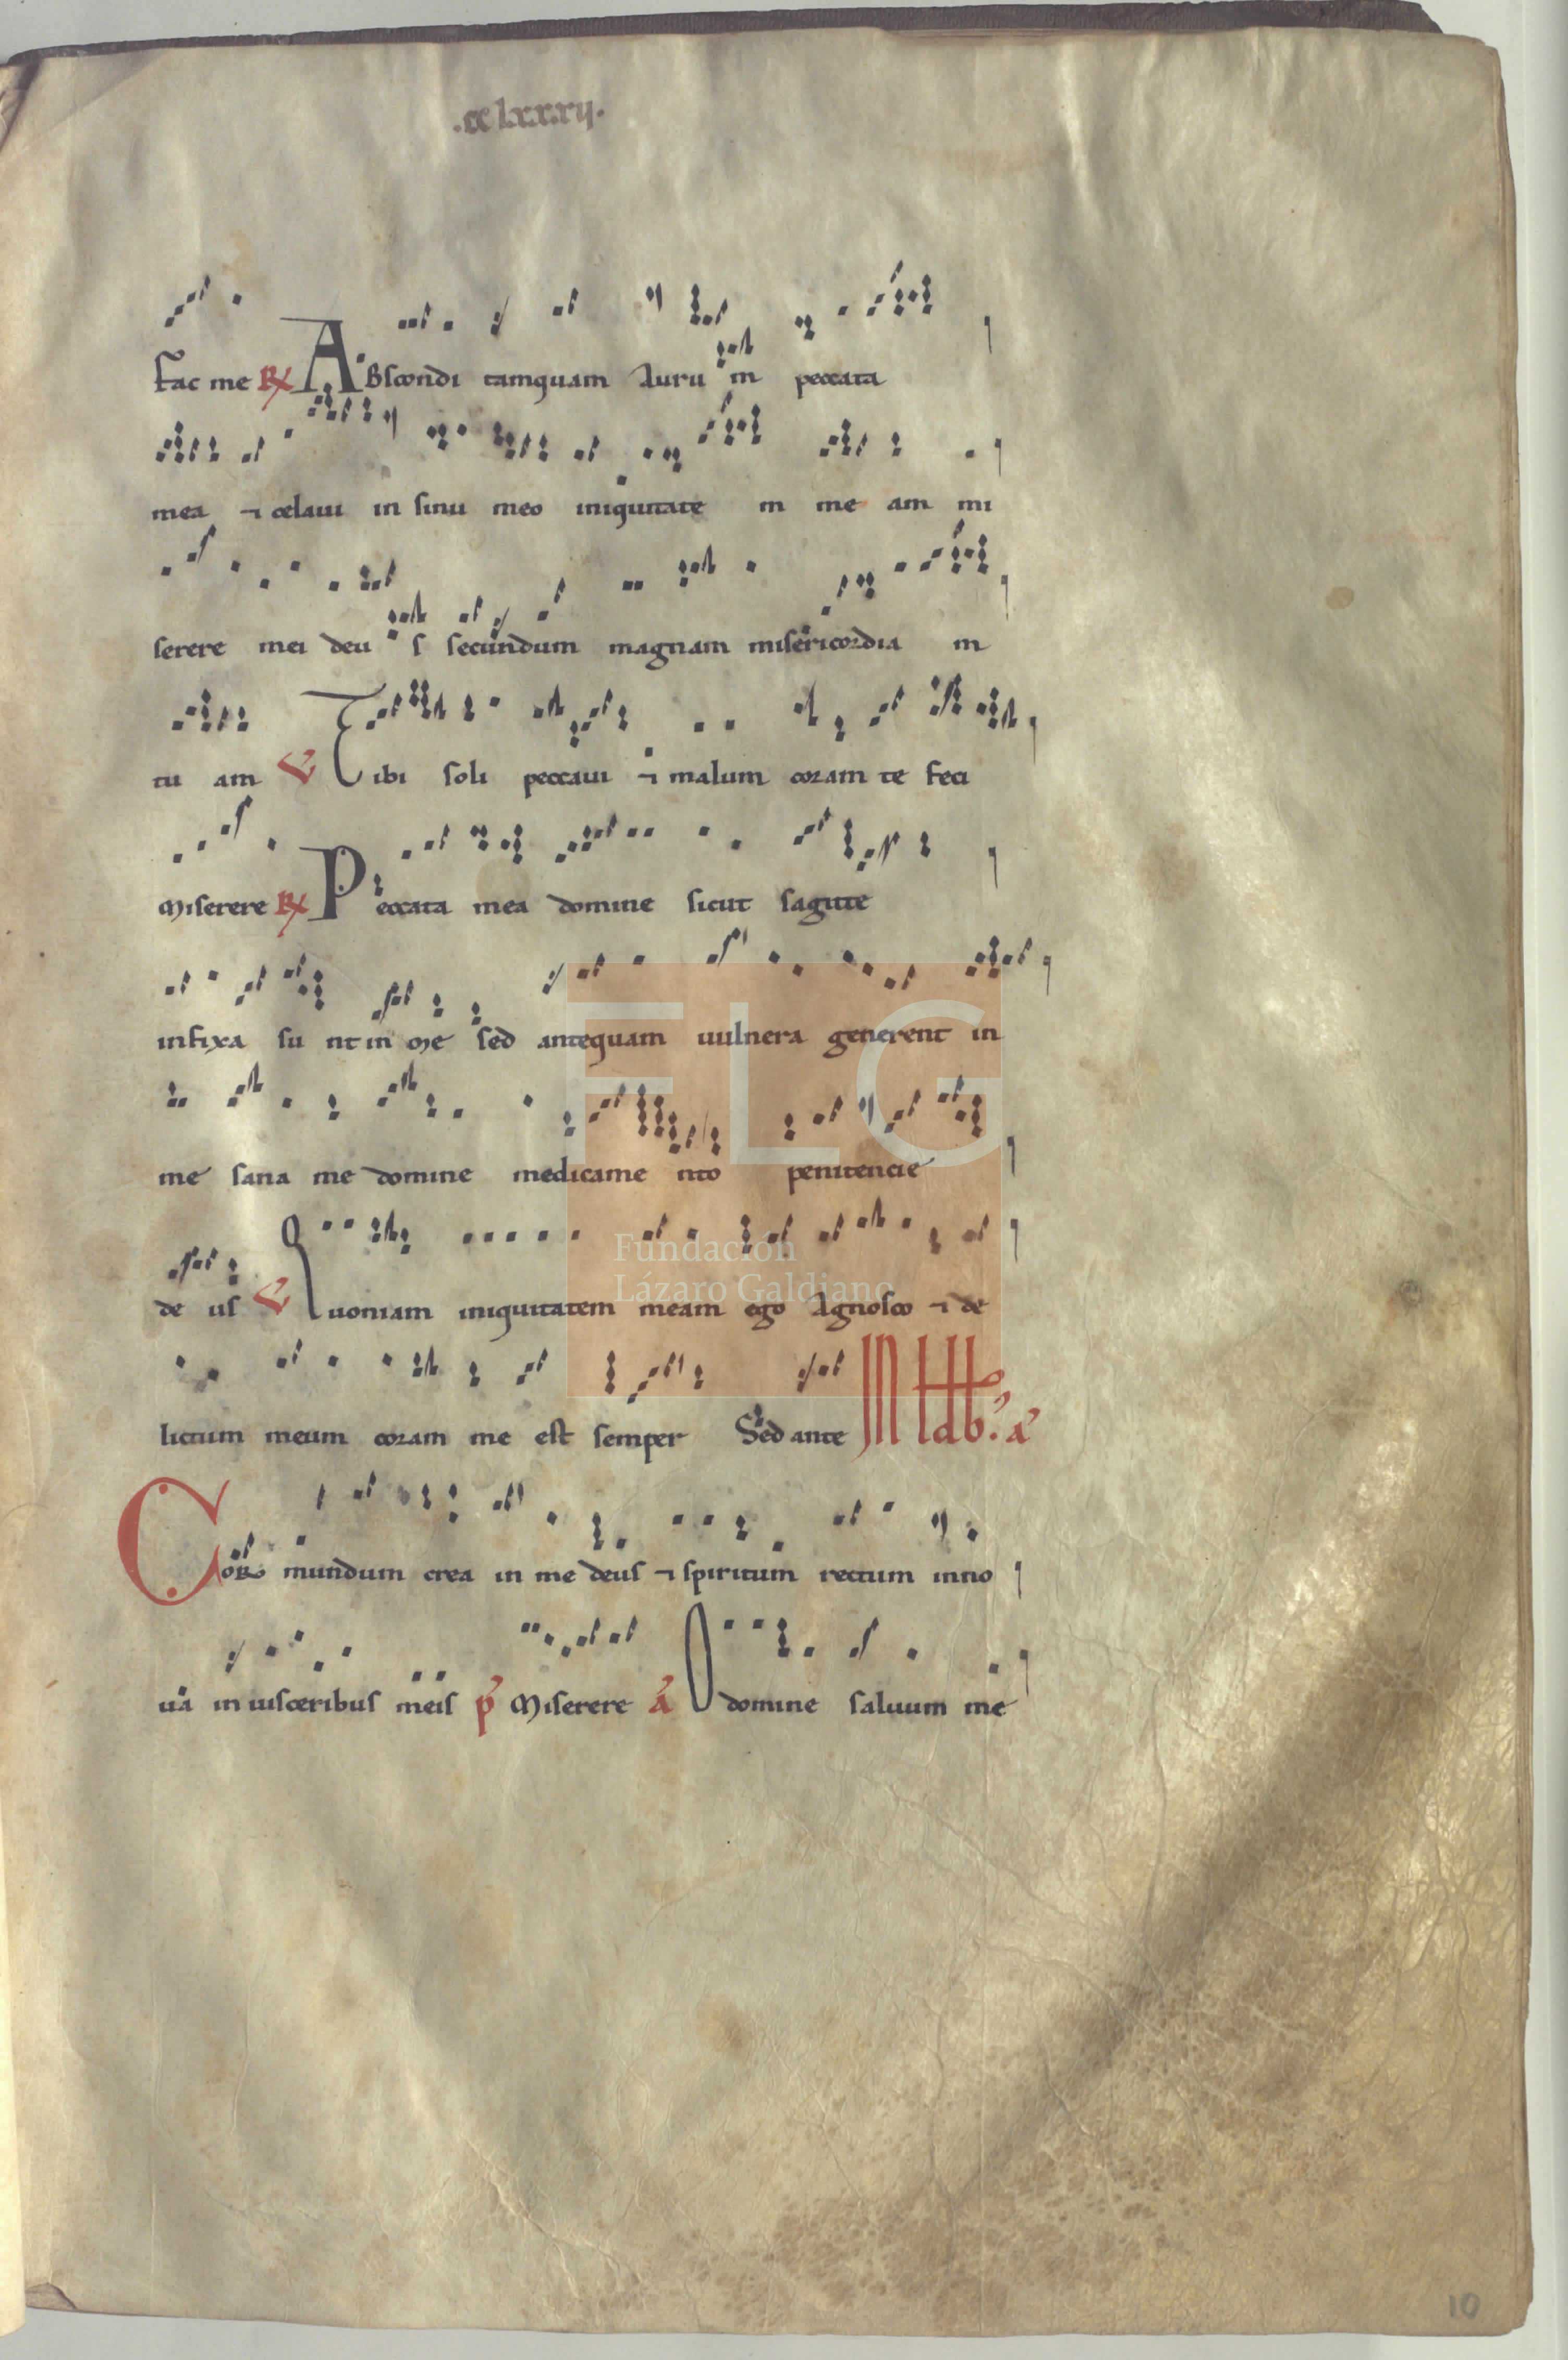 .cclxxxij.
fac me R Abscondi tamquam Auru m peccata
mea ⁊ celaui in sinu meo iniquitate m me am mi
serere mei deu s secundum magnam misericordia m
tu am V Tibi soli peccaui ⁊ malum coram te feci
Miserere R Peccata mea domine sicut sagitte
infixa su nt in me sed antequam uulnera generent in
me sana me domine medicame nto penitencie
de us V Quoniam iniquitatem meam ego Agnosco ⁊ de
lictum meum coram me est semper Sed ante IN
Cor mundum crea in me deus ⁊ spiritum rectum inno
ua in uisceribus meis p Miserere a O domine saluum me
FLG
Fundación
Lázaro Galdiano
10